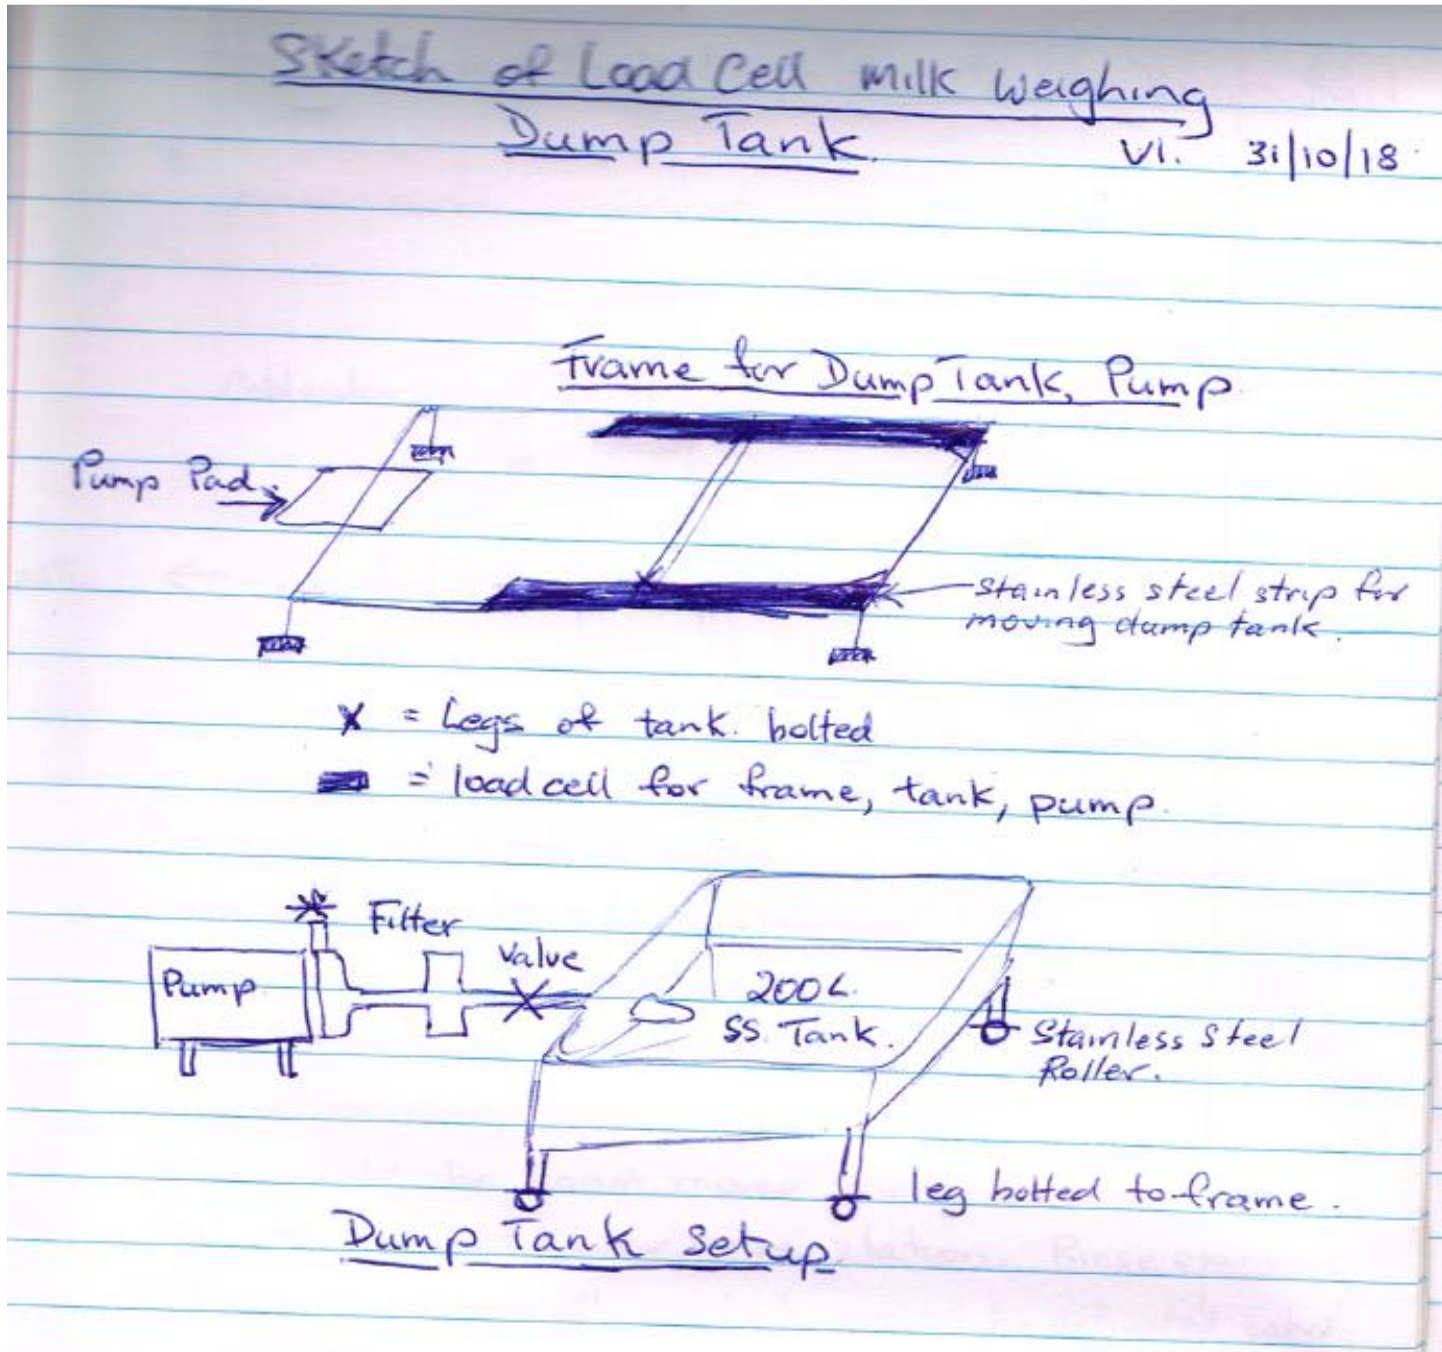 Sketch of Load Cell Milk Weighing
Dump Tank.
V1. 31/10/18
Frame for Dump Tank, Pump.
Pump Pad.
Stainless steel strip for
moving dump tank.
X = Legs of tank bolted
= load cell for frame, tank, pump.
Filter
Valve
Pump
200L.
SS. Tank.
Stainless Steel
Roller.
leg bolted to frame.
Dump Tank Setup